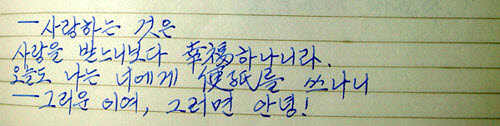 —사랑하는 것은
사랑을 받느니보다 幸福하나니라.
오늘도 나는 너에게 便紙를 쓰나니
—그리운 이여, 그러면 안녕!